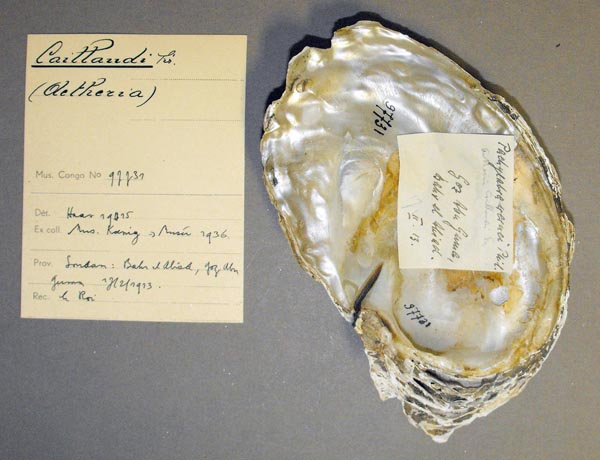 Caillaudi Fér.
(Aetheria)
Mus. Congo No 97731
Dét. Haas 1915
Ex coll. Mus. König → Musée 1936.
Prov. Soudan: Bahr el Abiad, Goz Abu
Guma 17/2/1913.
Rec. le Roi
97731
Goz Abu Guma,
Bahr el Abiad.
II. 13.
97731